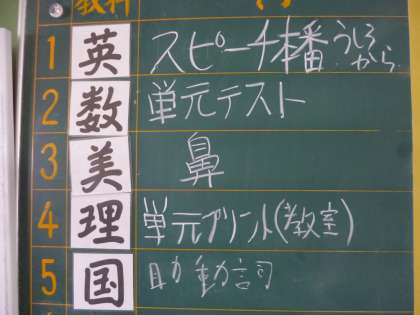 教科 内
1 英 スピーチ 椿 うしろから
2 数 単元テスト
3 美 鼻
4 理 単元プリント(教室)
5 国 助動詞